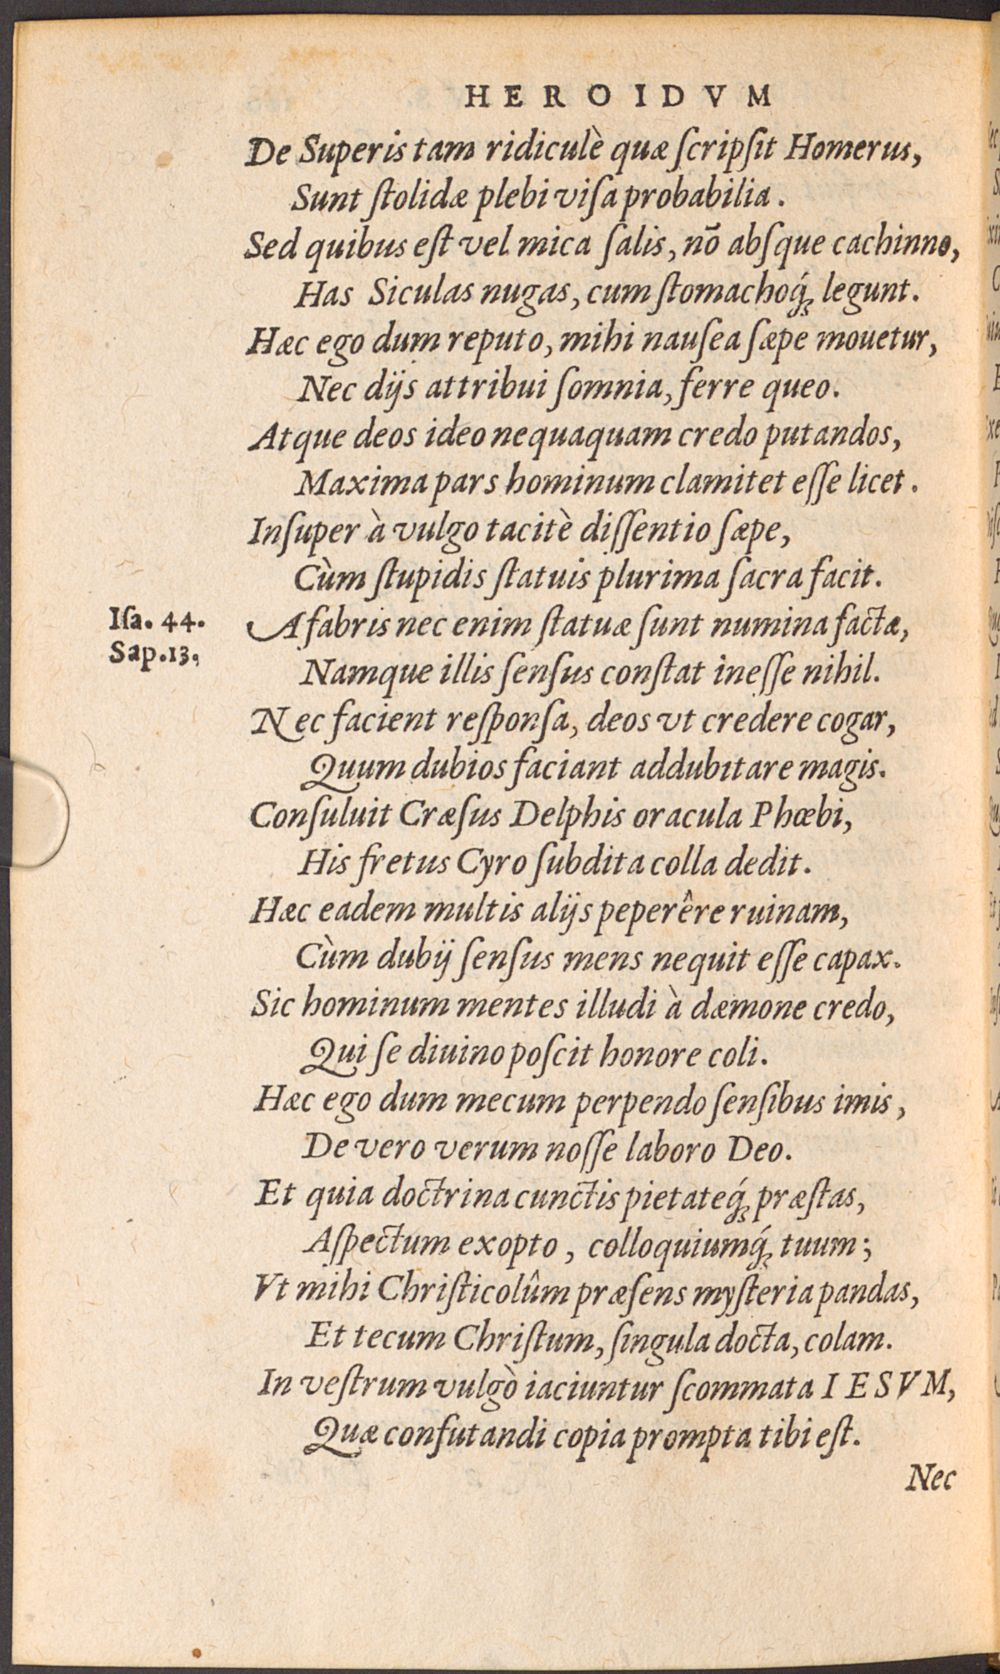 HEROIDVM
De Superis tam ridiculè quæ ſcripſit Homerus,
Sunt ſtolidæ plebi viſa probabilia.
Sed quibus eſt vel mica ſalis, nō abſque cachinno,
Has Siculas nugas, cum ſtomachoq́; legunt.
Hæc ego dum reputo, mihi nauſea ſæpe mouetur,
Nec dijs attribui ſomnia, ferre queo.
Atque deos ideo nequaquam credo putandos,
Maxima pars hominum clamitet eſſe licet.
Inſuper à vulgo tacitè diſſentio ſæpe,
Cùm ſtupidis ſtatuis plurima ſacra facit.
Iſa. 44.
Sap. 13.
A fabris nec enim ſtatuæ ſunt numina factæ,
Namque illis ſenſus conſtat ineſſe nihil.
Nec facient reſponſa, deos vt credere cogar,
Quum dubios faciant addubitare magis.
Conſuluit Cræſus Delphis oracula Phœbi,
His fretus Cyro ſubdita colla dedit.
Hæc eadem multis alijs peperêre ruinam,
Cùm dubij ſenſus mens nequit eſſe capax.
Sic hominum mentes illudi à dæmone credo,
Qui ſe diuino poſcit honore coli.
Hæc ego dum mecum perpendo ſenſibus imis,
De vero verum noſſe laboro Deo.
Et quia doctrina cunctis pietateq́; præſtas,
Aſpectum exopto, colloquiumq́; tuum;
Vt mihi Chriſticolûm præſens myſteria pandas,
Et tecum Chriſtum, ſingula docta, colam.
In veſtrum vulgò iaciuntur ſcommata IESVM,
Quæ confutandi copia prompta tibi eſt.
Nec